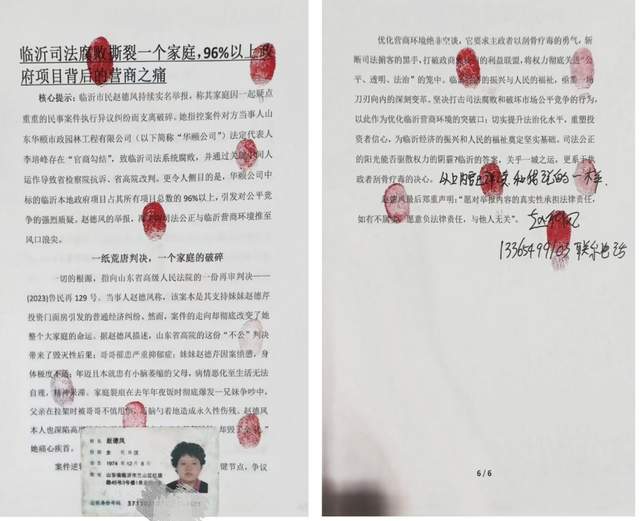 临沂司法腐败撕裂一个家庭，96%以上政
府项目背后的营商之痛
核心提示：临沂市民赵德风持续实名举报，称其家庭因一起疑点
重重的民事案件执行异议纠纷而支离破碎。她指控案件对方当事人山
东华颐市政园林工程有限公司（以下简称“华颐公司”）法定代表人
李培峰存在“官商勾结”，致临沂司法系统腐败，并通过关键中间人
运作导致省检察院抗诉、省高院改判。更令人侧目的是，华颐公司中
标的临沂本地政府项目占其所有项目总数的96%以上，引发对公平竞
争的强烈质疑。赵德风的举报，将司法公正与临沂营商环境推至
风口浪尖。
一纸荒唐判决，一个家庭的破碎
一切的根源，指向山东省高级人民法院的一份再审判决——
(2023)鲁民再129号。当事人赵德风称，该案本是其支持妹妹赵德芹
投资门面房引发的普通经济纠纷，然而，案件的走向却彻底改变了她
整个大家庭的命运。据赵德风描述，山东省高院的这份“不公”判决
带来了毁灭性后果：哥哥罹患严重抑郁症；妹妹赵德芹因案愤感，身
体极度不适；年迈且本就患有小脑萎缩的父母，病情恶化至生活无法
自理，精神呆滞。家庭裂痕在去年年夜饭时彻底爆发—兄妹争吵中，
父亲在拉架时被哥哥不慎甩倒，后脑勺着地造成永久性伤残。赵德风
本人也深陷高
她痛心疾首。
姓名 赵德风
性别 女 民族 汉
出生 1974年12月8日
住址 山东省临沂市兰山区红旗
路45号3号楼1单元
公民身份号码
案件逆转
键节点，争议
优化营商环境绝非空谈，它要求主政者以刮骨疗毒的勇气，斩
断司法掮客的黑手，打破政商勾结的利益联盟，将权力彻底关进“公
平、透明、法治”的笼中。临沂经济的振兴与人民的福祉，亟需一场
刀刃向内的深刻变革，坚决打击司法腐败和破坏市场公平竞争的行为，
以此作为优化临沂营商环境的突破口；切实提升法治化水平，重塑投
资者信心，为临沂经济的振兴和人民的福祉奠定坚实基础。司法公正
的阳光能否驱散权力的阴霾?临沂的答案，关乎一城之运，更系于执
政者刮骨疗毒的决心。以上内容
赵德风最后郑重声明：“愿对举报内容的真实性承担法律责任，
如有不属实，愿意负法律责任，与他人无关”。赵德风
联系电话
6 / 6